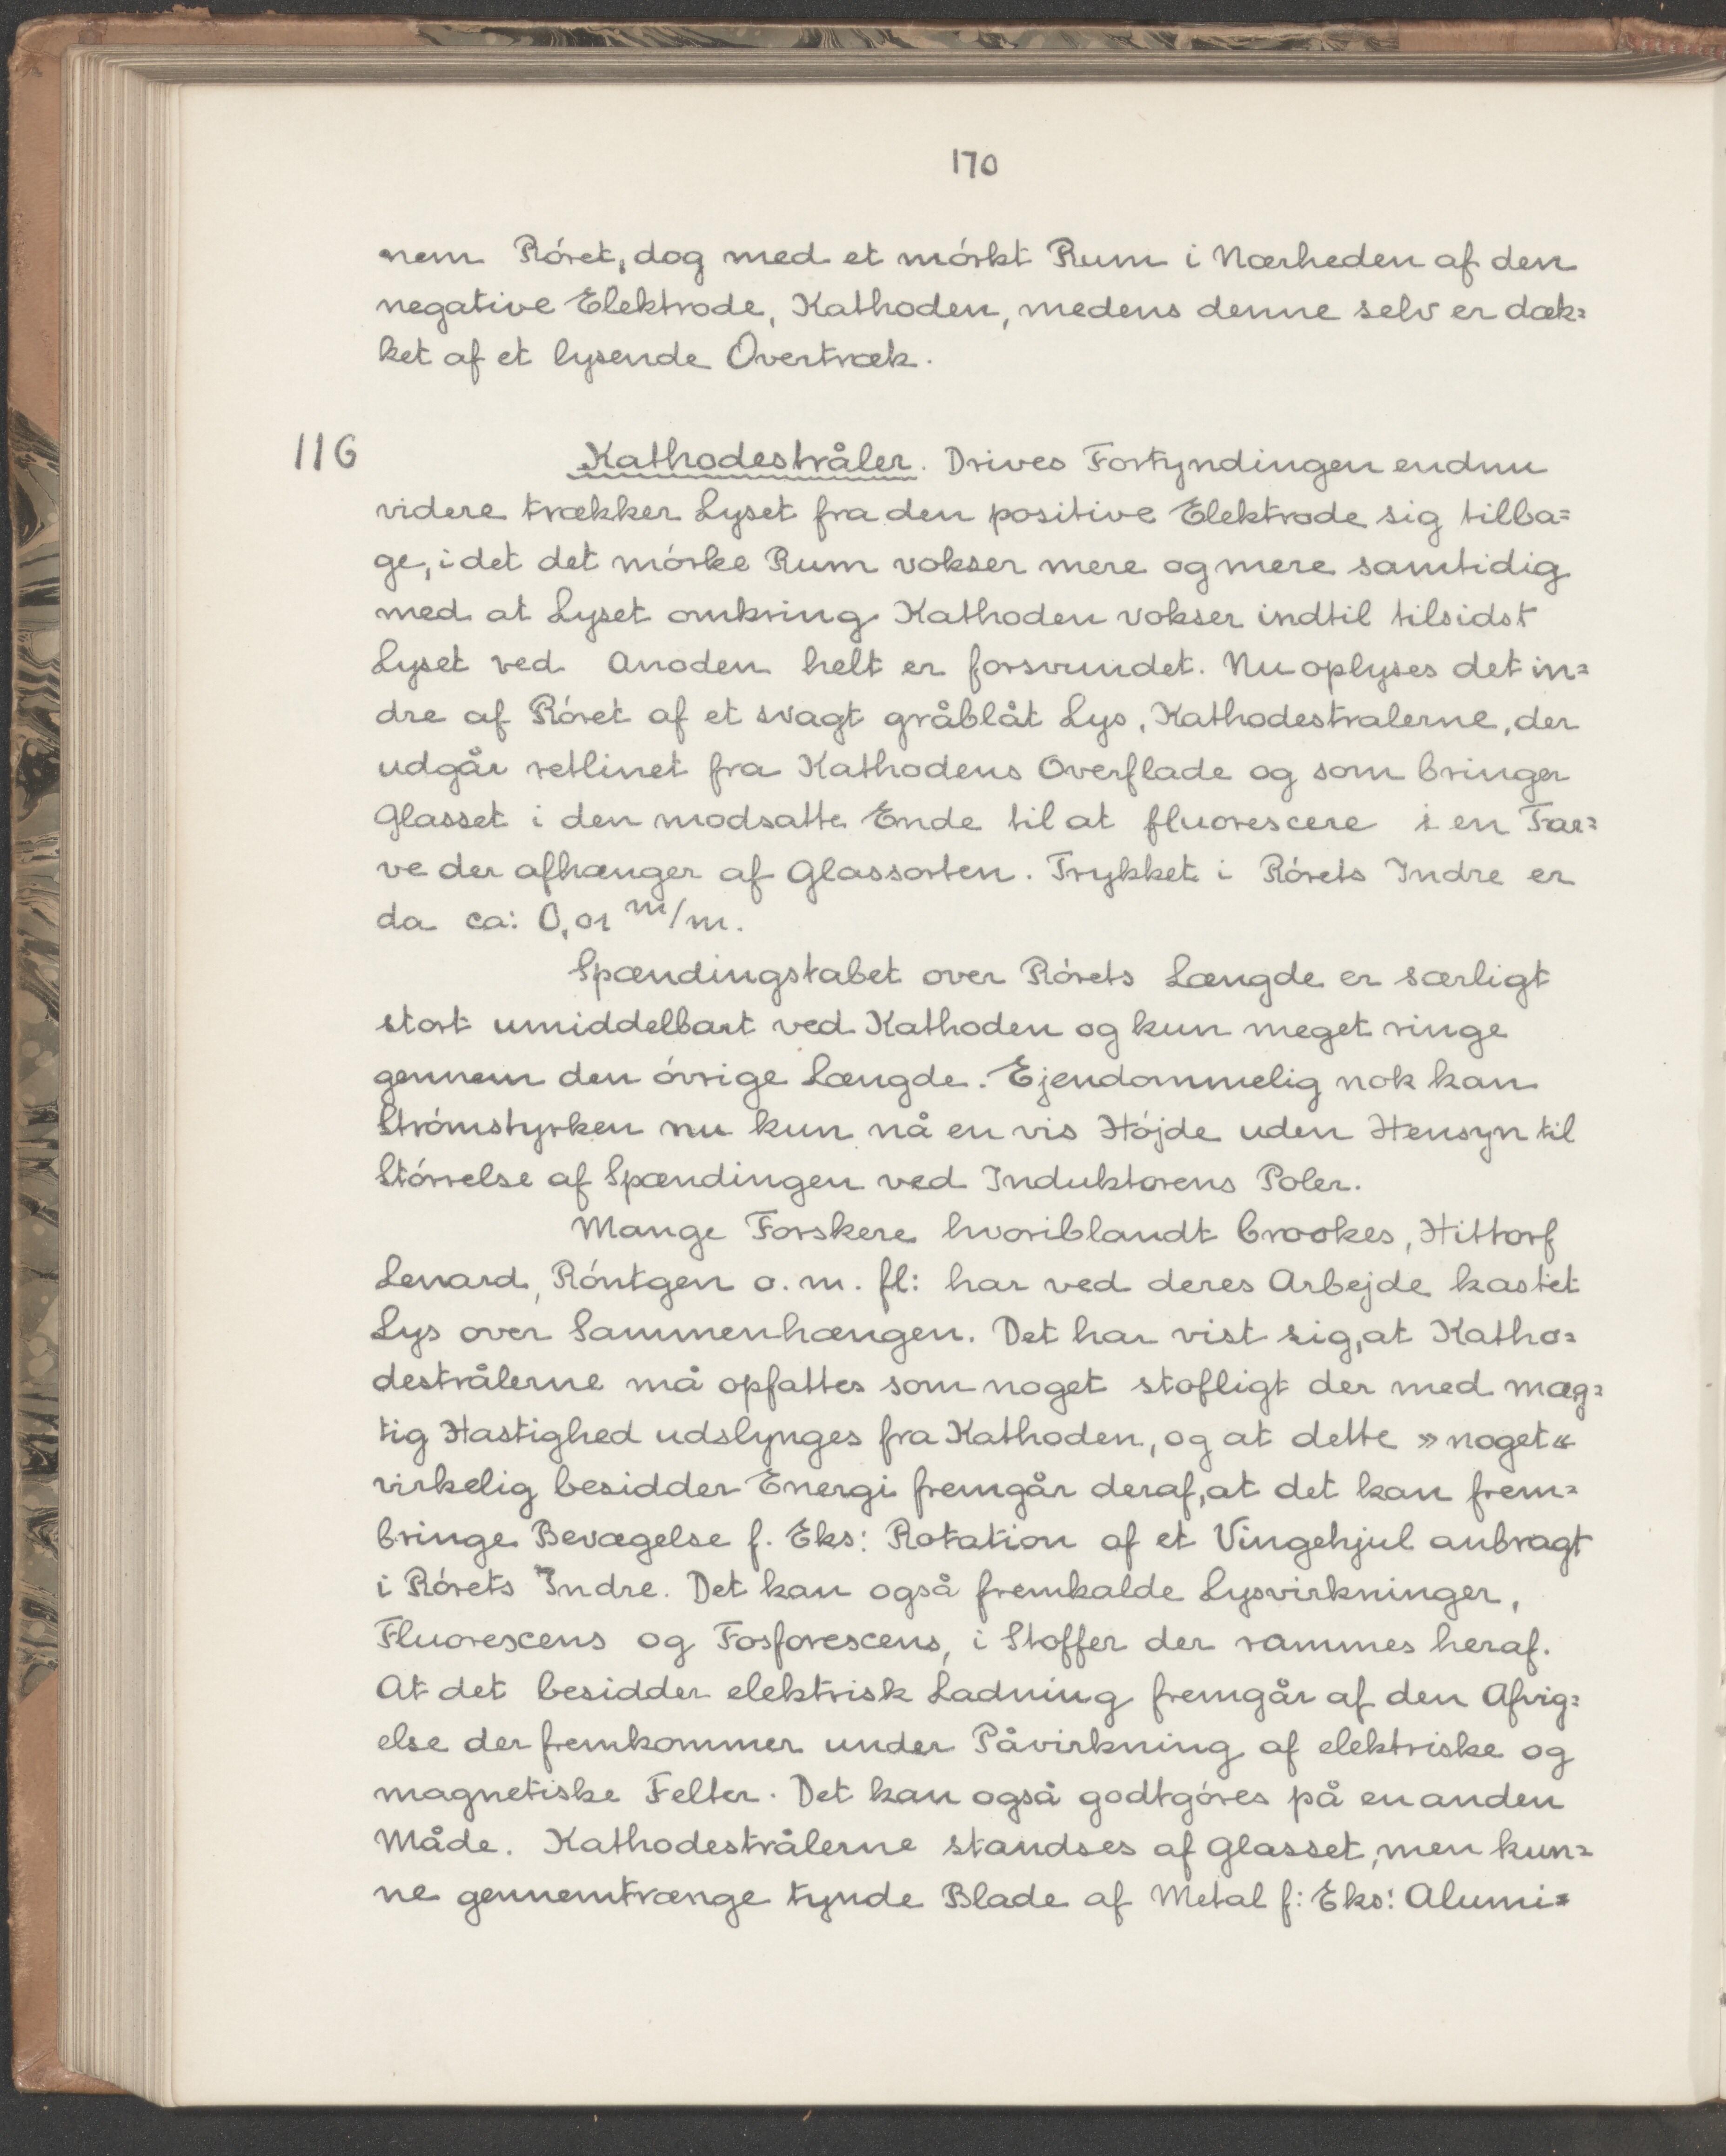 170
nem Róret, dog med et mórkt Rum i Nærheden af den
negative Elektrode, Kathoden, medens denne selv er dæk=
ket af et lysende Overtræk.
116 Kathodestråler. Drives Fortyndingen endnu
videre trækker Lyset fra den positive Elektrode sig tilba=
ge, i det det mórke Rum vokser mere og mere samtidig
med at Lyset omkring Kathoden vokser indtil tilsidst
Lyset ved Anoden helt er forsvundet. Nu oplyses det in=
dre af Róret af et svagt gråblåt Lys, Kathodestralerne, der
udgår retlinet fra Kathodens Overflade og som bringer
Glasset i den modsatte Ende til at fluorescere i en Far=
ve der afhænger af Glassorten. Trykket i Rórets Indre er
da ca: 0,01 m/m.
Spændingstabet over Rórets Længde er særligt
stort umiddelbart ved Kathoden og kun meget ringe
gennem den óvrige Længde. Ejendommelig nok kan
Strómstyrken nu kun nå en vis Hójde uden Hensyn til
Stórrelse af Spændingen ved Induktorens Poler.
Mange Forskere hvoriblandt Crookes, Hittorf
Lenard, Róntgen o. m. fl: har ved deres Arbejde kastet
Lys over Sammenhængen. Det har vist sig, at Katho=
destrålerne må opfattes som noget stofligt der med mæg=
tig Hastighed udslynges fra Kathoden, og at dette »noget«
virkelig besidder Energi fremgår deraf, at det kan frem=
bringe Bevægelse f. Eks: Rotation af et Vingehjul anbragt
i Rórets Indre. Det kan også fremkalde Lysvirkninger,
Fluorescens og Fosforescens, i Stoffer der rammes heraf.
At det besidder elektrisk Ladning fremgår af den Afvig=
else der fremkommer under Påvirkning af elektriske og
magnetiske Felter. Det kan også godtgóres på en anden
Måde. Kathodestrålerne standses af Glasset, men kun=
ne gennemtrænge tynde Blade af Metal f: Eks: Alumi=